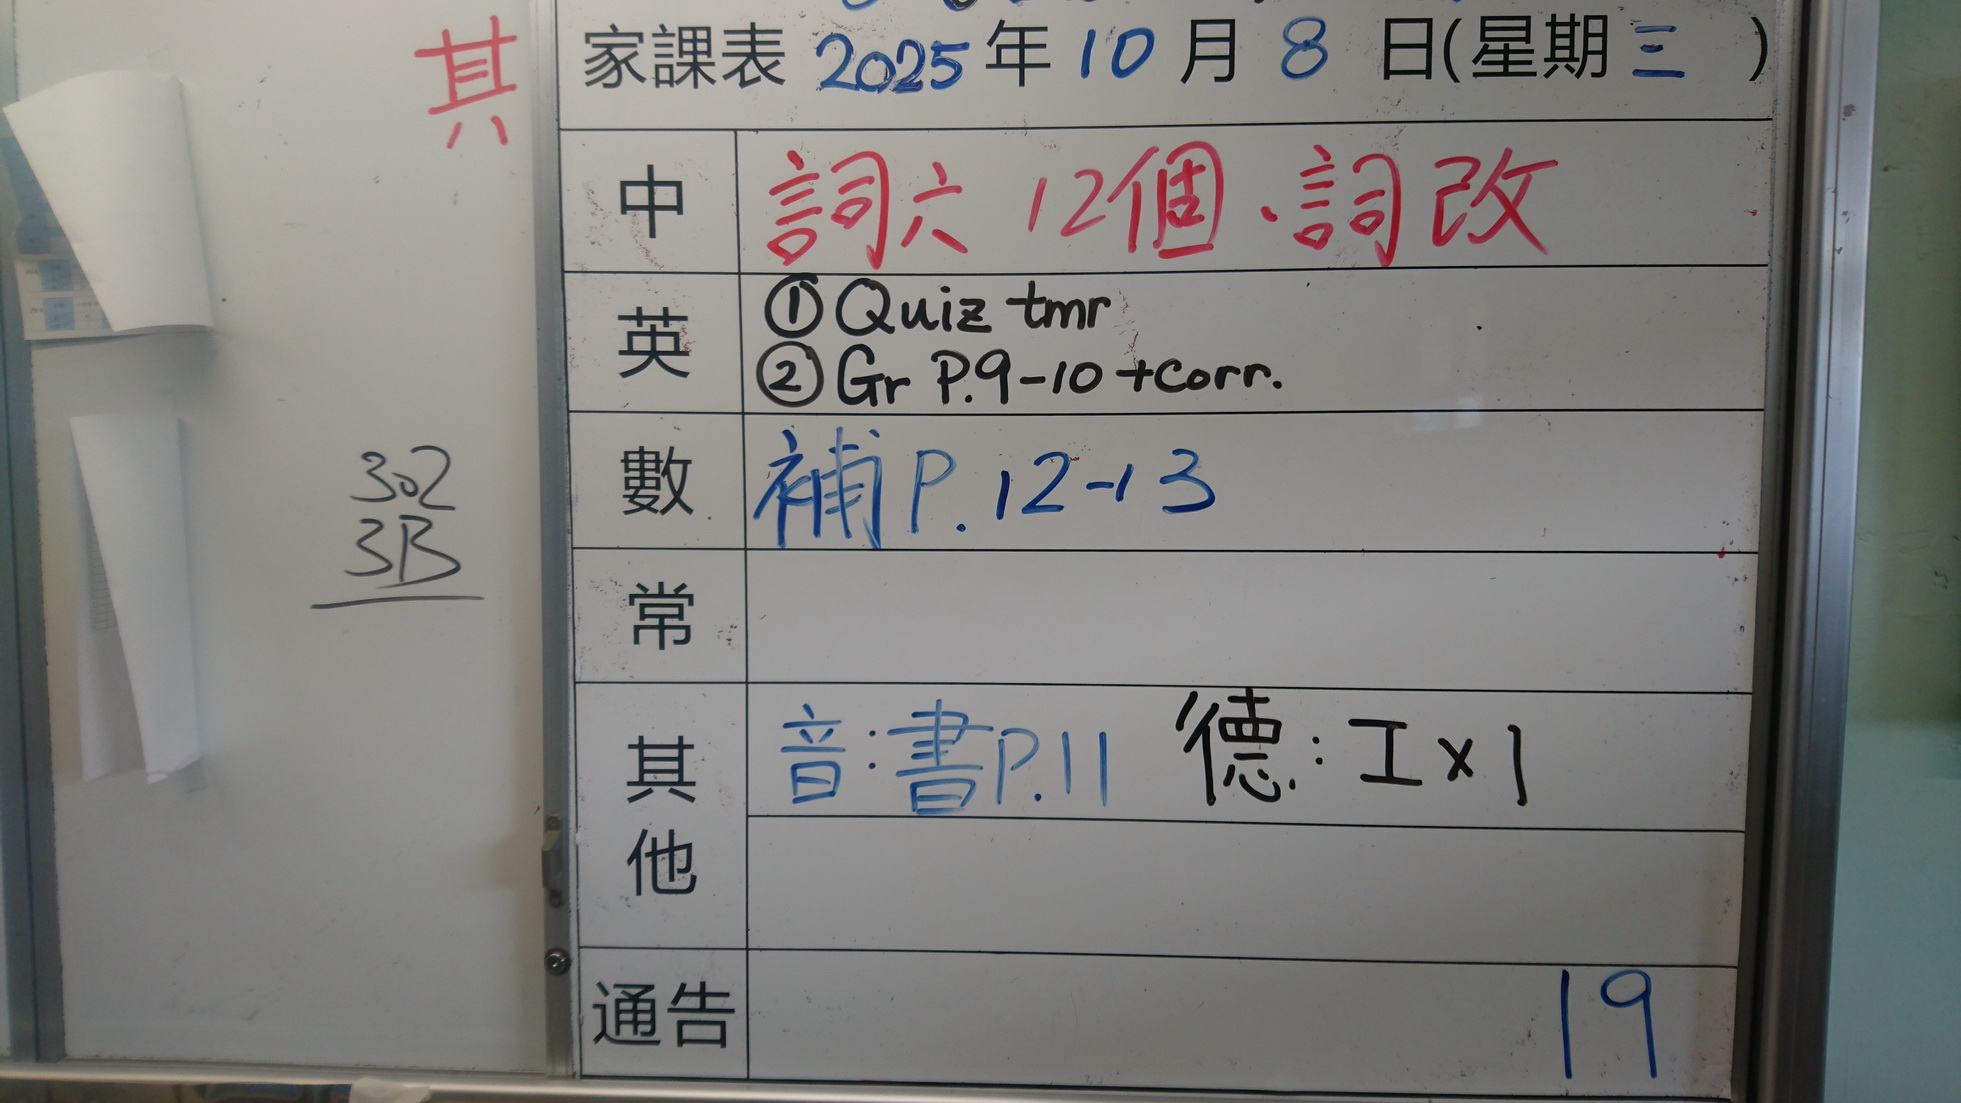 其
302
3B
家課表 2025年10月8日(星期三)
中 詞六 12個、詞改
英 ① Quiz tmr
② Gr P.9-10 +corr.
數 補P.12-13
常
其他 音:書P.11 德:工x1
通告 19